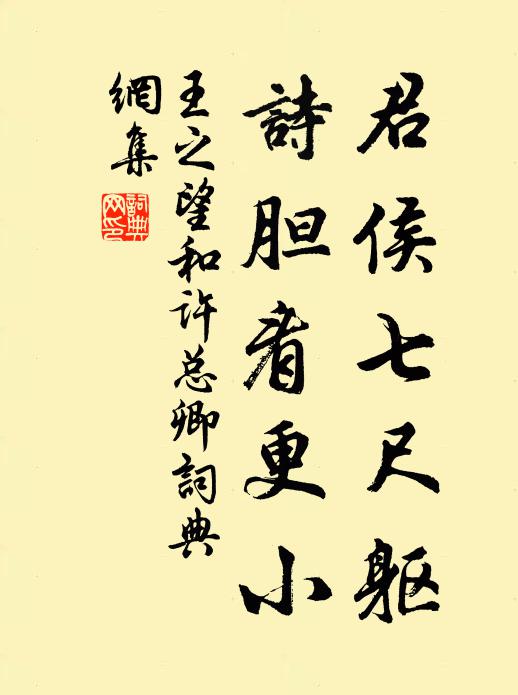 君侯七尺躯
詩胆看更小
王之望和许总卿詞典
網集
詞典
网印